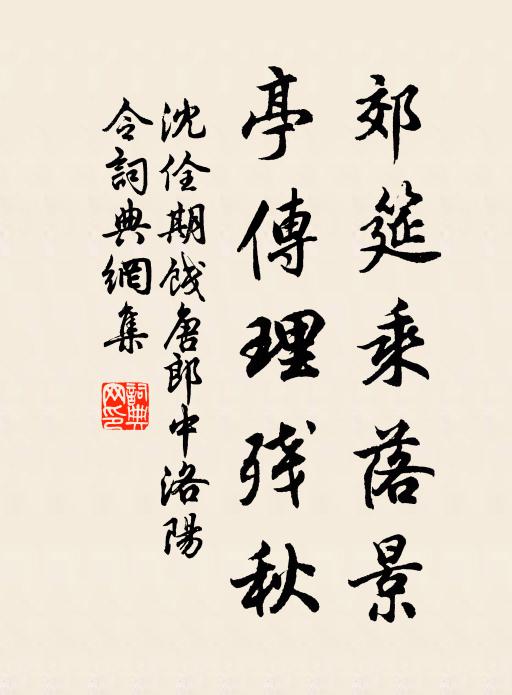 郊筵乘落景
亭傳理殘秋
沈佺期餞唐郎中洛陽
令詞典網集
詞典
网印